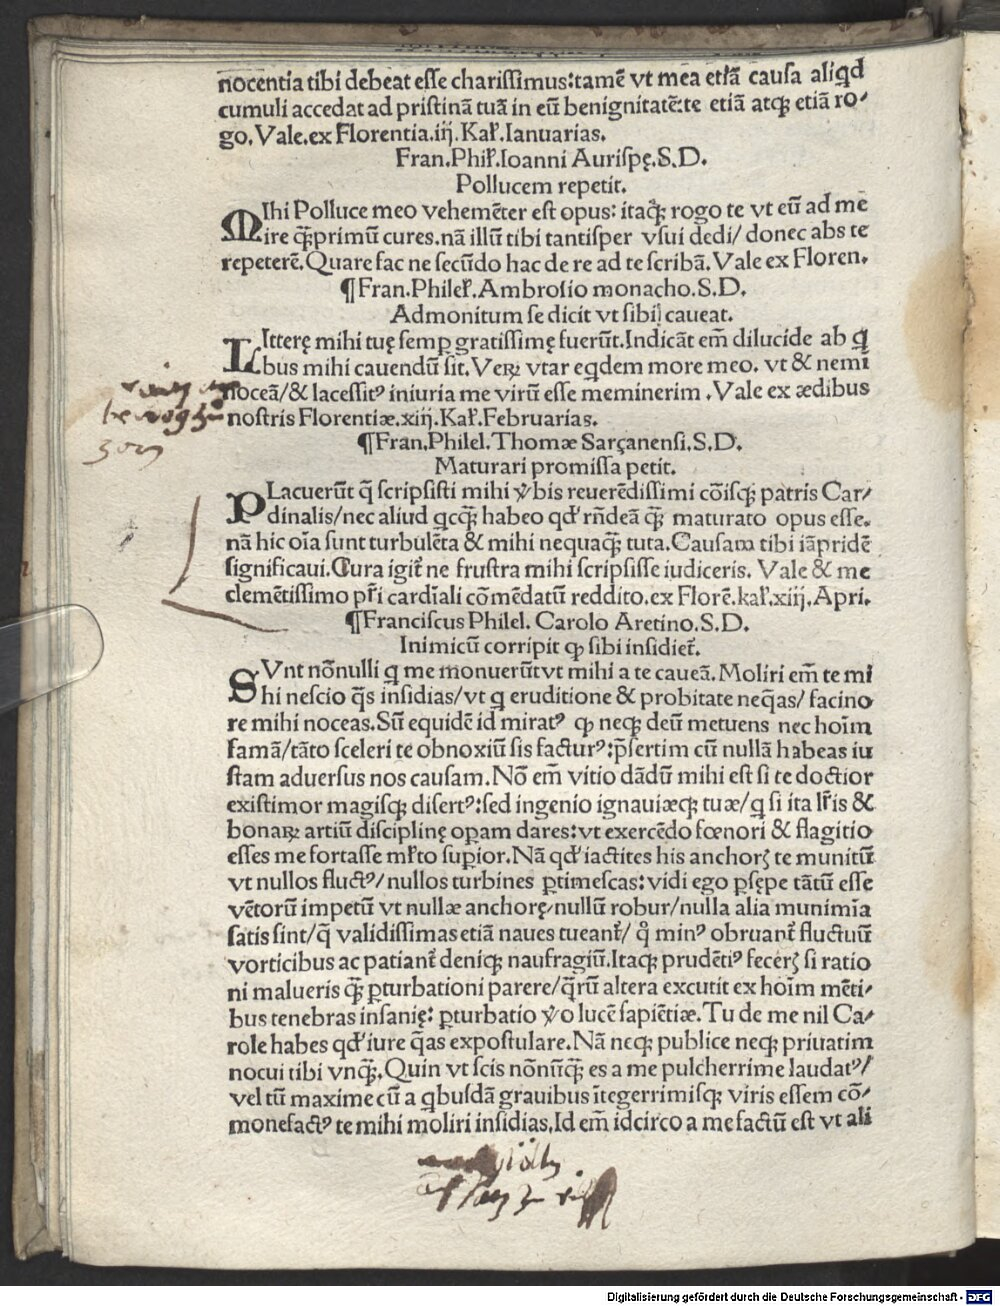 nocentia tibi debeat esse charissimus:tamē vt mea etiā causa aliqd
cumuli accedat ad pristinā tuā in eū benignitatē:te etiā atqꝫ etiā ro⸗
go. Vale.ex Florentia.iij. Kaƚ. Ianuarias.
Fran.Phiƚ.Ioanni Aurispę.S.D.
Pollucem repetit.
MIhi Polluce meo vehemēter est opus: itaqꝫ rogo te vt eū ad me
ire qꝫprimū cures.nā illū tibi tantisper vsui dedi/ donec abs te
repeterē.Quare fac ne secūdo hac de re ad te scribā.Vale ex Floren.
¶Fran.Phileƚ.Ambrosio monacho.S.D.
Admonitum se dicit vt sibi caueat.
LIttterę mihi tuę semꝑ gratissimę fuerūt.Indicāt em̄ dilucide ab ꝗ
bus mihi cauendū sit. Veꝝ vtar eqdem more meo. vt & nemi
noceā/& lacessitꝰ iniuria me virū esse meminerim . Vale ex ædibus
nostris Florentiæ.xiij.Kaƚ.Februarias.
¶Fran.Philel. Thomæ Sarçanensi.S.D.
Maturari promissa petit.
PLacuerūt q̄ scripsisti mihi v̉bis reuerēdissimi cōisqꝫ patris Car⸗
dinalis/nec aliud ꝗcqꝫ habeo qd' rn̄deā qꝫ maturato opus esse.
nā hic oīa sunt turbulēta & mihi nequaqꝫ tuta.Causam tibi iāpridē
significaui.Cura igit̄ ne frustra mihi scripsisse iudiceris. Vale & me
clemētissimo pr̄i cardīali cōmēdatū reddito.ex Florē.kaƚ.xiij.Apri.
¶Franciscus Philel. Carolo Aretino.S.D.
Inimicū corripit ꝙ sibi insidiet̄.
SVnt nōnulli ꝗ me monuerūt vt mihi a te caueā.Moliri em̄ te mi
hi nescio ꝗs insidias/vt ꝗ eruditione & probitate neqas/ facino
re mihi noceas.Sū equidē id miratꝰ ꝙ neqꝫ deū metuens nec hoīm
famā/tāto sceleri te obnoxiū sis facturꝰ:p̄sertim cū nullā habeas iu
stam aduersus nos causam.Nō em̄ vitio dādū mihi est si te doctior
existimor magisqꝫ disertꝰ:sed ingenio ignauiæqꝫ tuæ/ꝗ si ita lr̄is &
bonaꝝ artiū disciplinę oꝑam dares:vt exercēdo fœnori & flagitio
esses me fortasse mƚto suꝑior.Nā qd' iactites his anchorꝭ te munitū
vt nullos fluctꝰ/nullos turbines ꝑtimescas:vidi ego ꝑsępe tātū esse
vētorū impetū vt nullæ anchorę/nullū robur/nulla alia munimīa
satis sint/q̄ validissimas etiā naues tueant̄/ qͦ minꝰ obruant̄ fluctuū
vorticibus ac patiant̄ deniqꝫ naufragiū.Itaqꝫ prudētiꝰ fecerꝭ si ratio
ni malueris qꝫ ꝑturbationi parere/q̄rū altera excutit ex hoīm mēti⸗
bus tenebras insanię: ꝑturbatio v̉o lucē sapiētiæ.Tu de me nil Ca⸗
role habes qd' iure q̄as expostulare.Nā neqꝫ publice neqꝫ priuatim
nocui tibi vnqꝫ.Quin vt scis nōnūqꝫ es a me pulcherrime laudatꝰ/
vel tū maxime cū a ꝗbusdā grauibus ītegerrimisqꝫ viris essem cō⸗
monefactꝰ te mihi moliri insidias.Id em̄ idcirco a me factū est vt ali
Digitalisierung gefördert durch die Deutsche Forschungsgemeinschaft - DFG